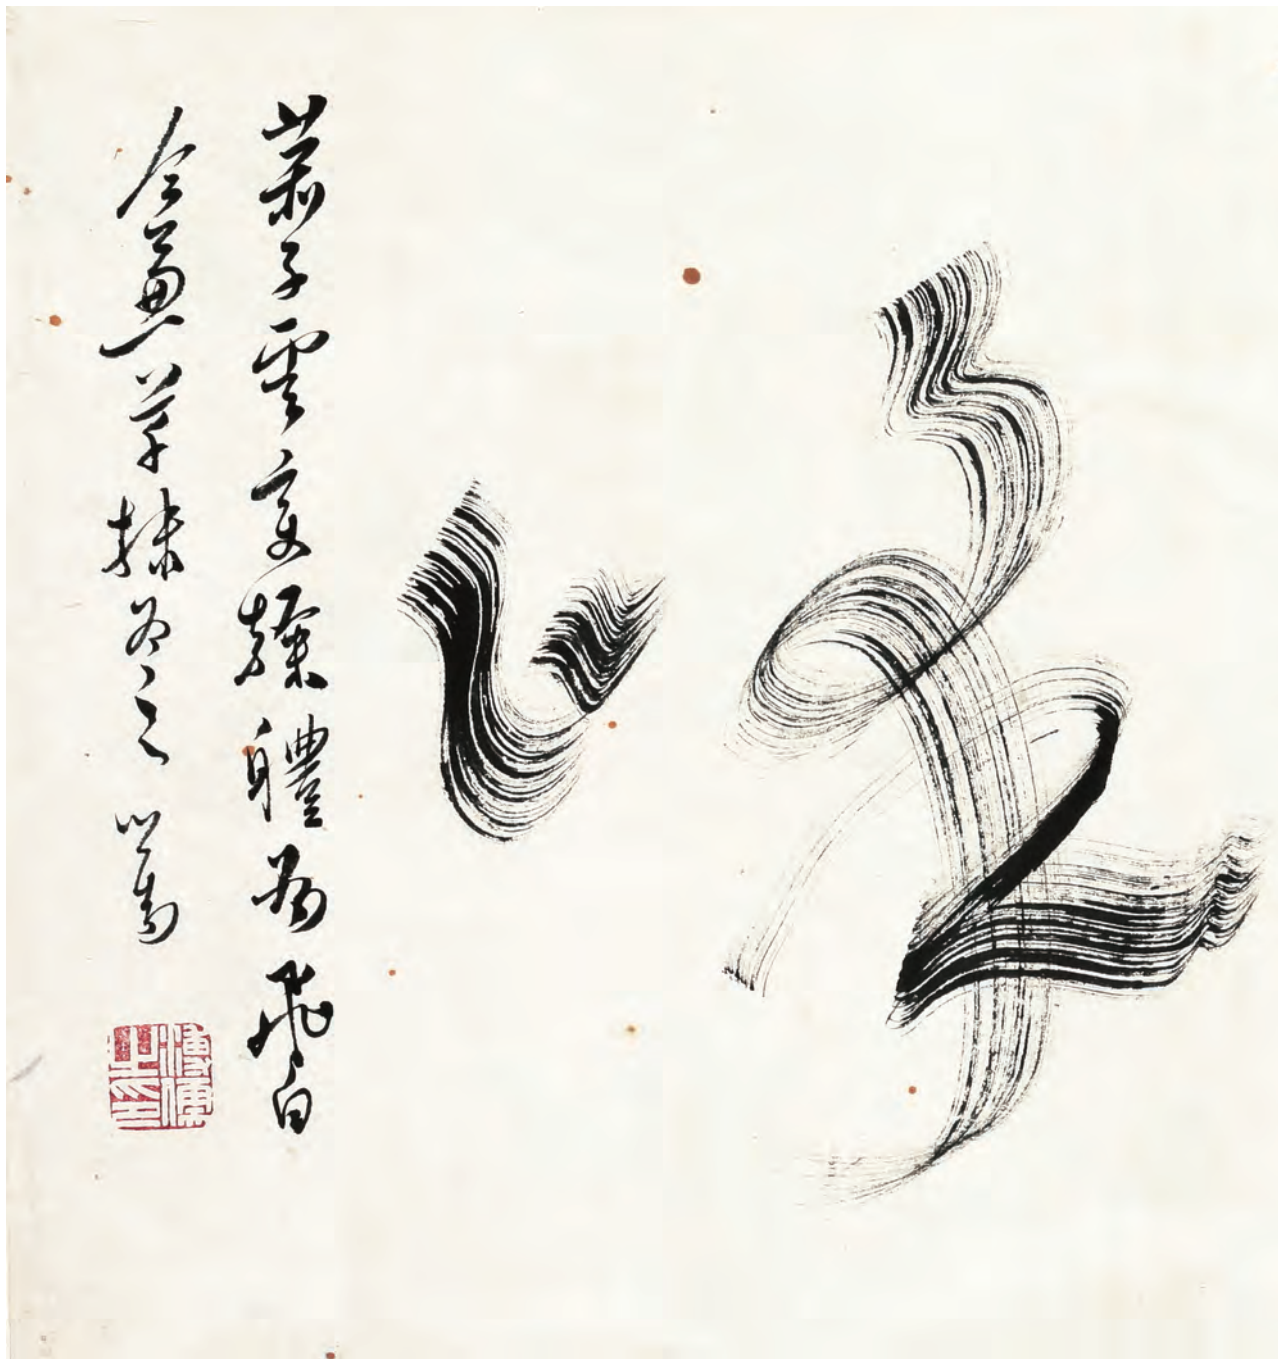 蕭子雲變隸體為飛白
今兼草隸為之 心畬
溥儒之印